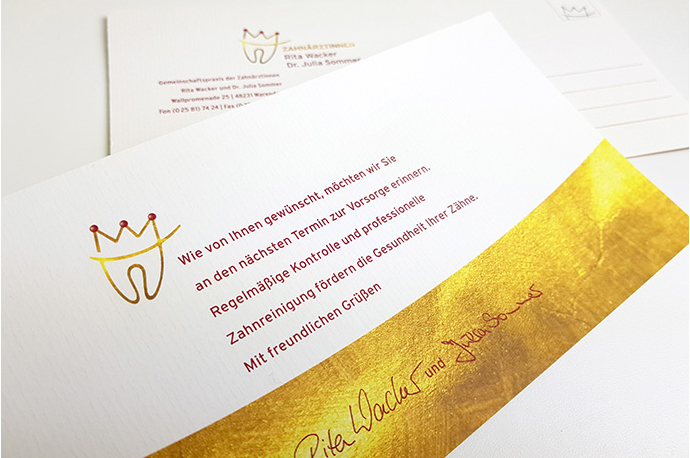 ZAHNÄRZTINNEN
Rita Wacker
Dr. Julia Sommer
Gemeinschaftspraxis der Zahnärztinnen
Rita Wacker und Dr. Julia Sommer
Wallpromenade 25 | 48231 Waren
Fon (0 25 81) 74 24 | Fax (0
Wie von Ihnen gewünscht, möchten wir Sie
an den nächsten Termin zur Vorsorge erinnern.
Regelmäßige Kontrolle und professionelle
Zahnreinigung fördern die Gesundheit Ihrer Zähne.
Mit freundlichen Grüßen
Rita Wacker und Julia Sommer